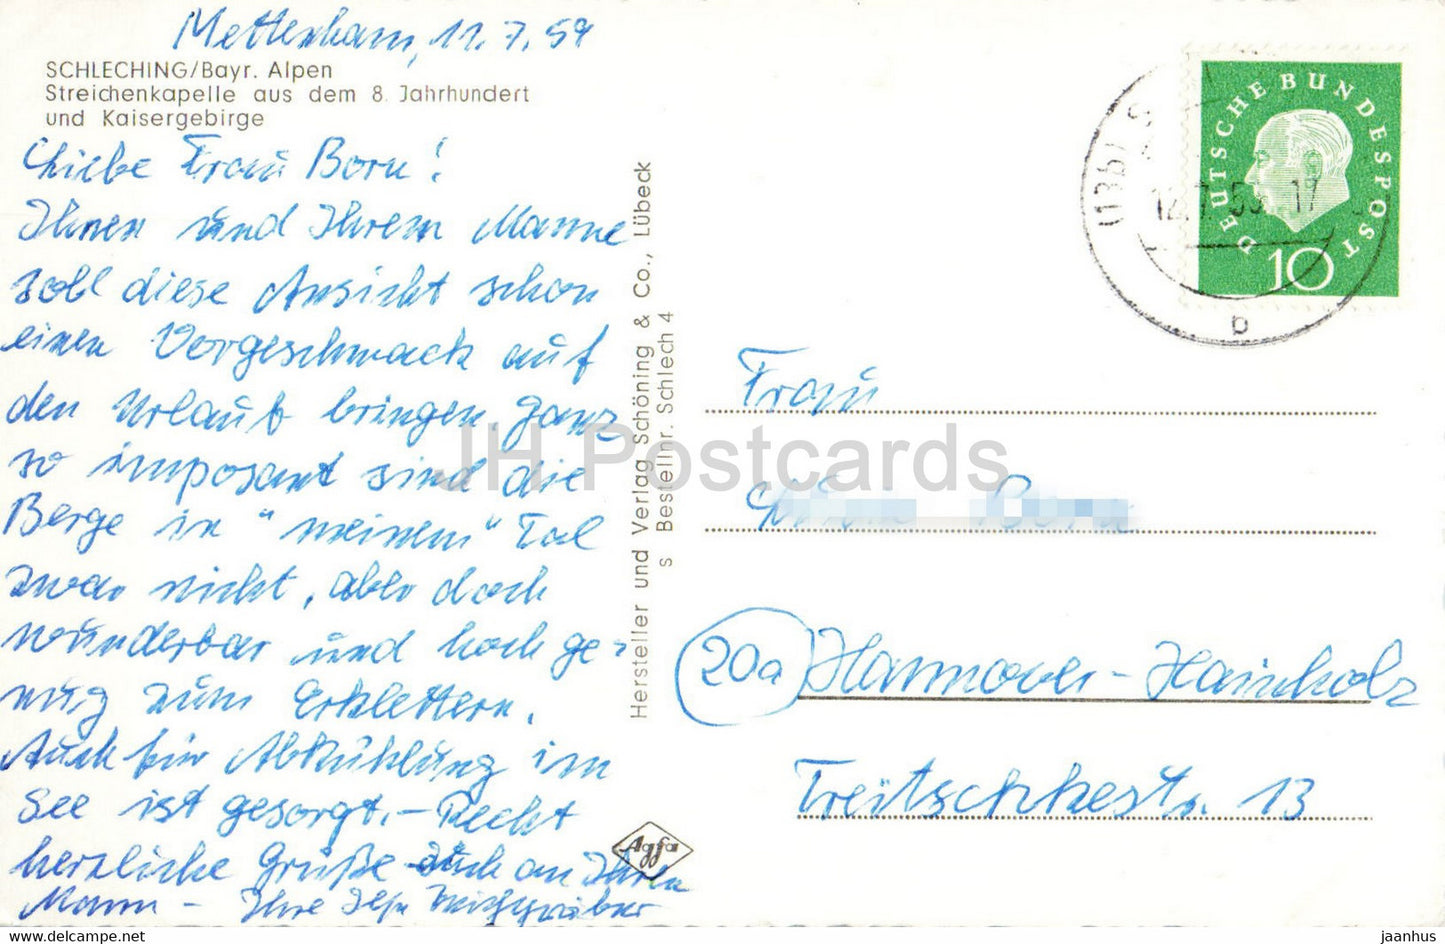 Mettenham, 11.7.59
SCHLECHING/Bayr. Alpen
Streichenkapelle aus dem 8. Jahrhundert
und Kaisergebirge
Liebe Frau Born!
Ihnen und Ihrem Manne
soll diese Ansicht schon
einen Vorgeschmack auf
den Urlaub bringen, ganz
so imposant sind die
Berge in "meinem" Tal
zwar nicht, aber doch
wunderbar und hoch ge-
nug zum Erklettern.
Auch für Abkühlung im
See ist gesorgt. - Recht
herzliche Grüße auch an Ihren
Mann - Ihre
Hersteller und Verlag Schöning & Co., Lübeck
s Bestellnr. Schlech 4
Agfa
DEUTSCHE BUNDESPOST
10
(13b) S
12.7.59 17
b
Frau
Born
20a Hannover-Hainholz
Treitschkestr. 13
JH Postcards
www.hippostcard.com
jaanhus